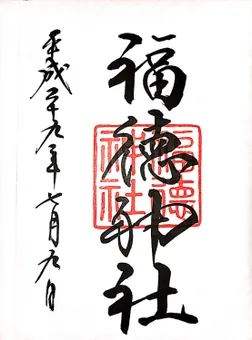 福徳神社
福徳神社
平成二十九年七月九日